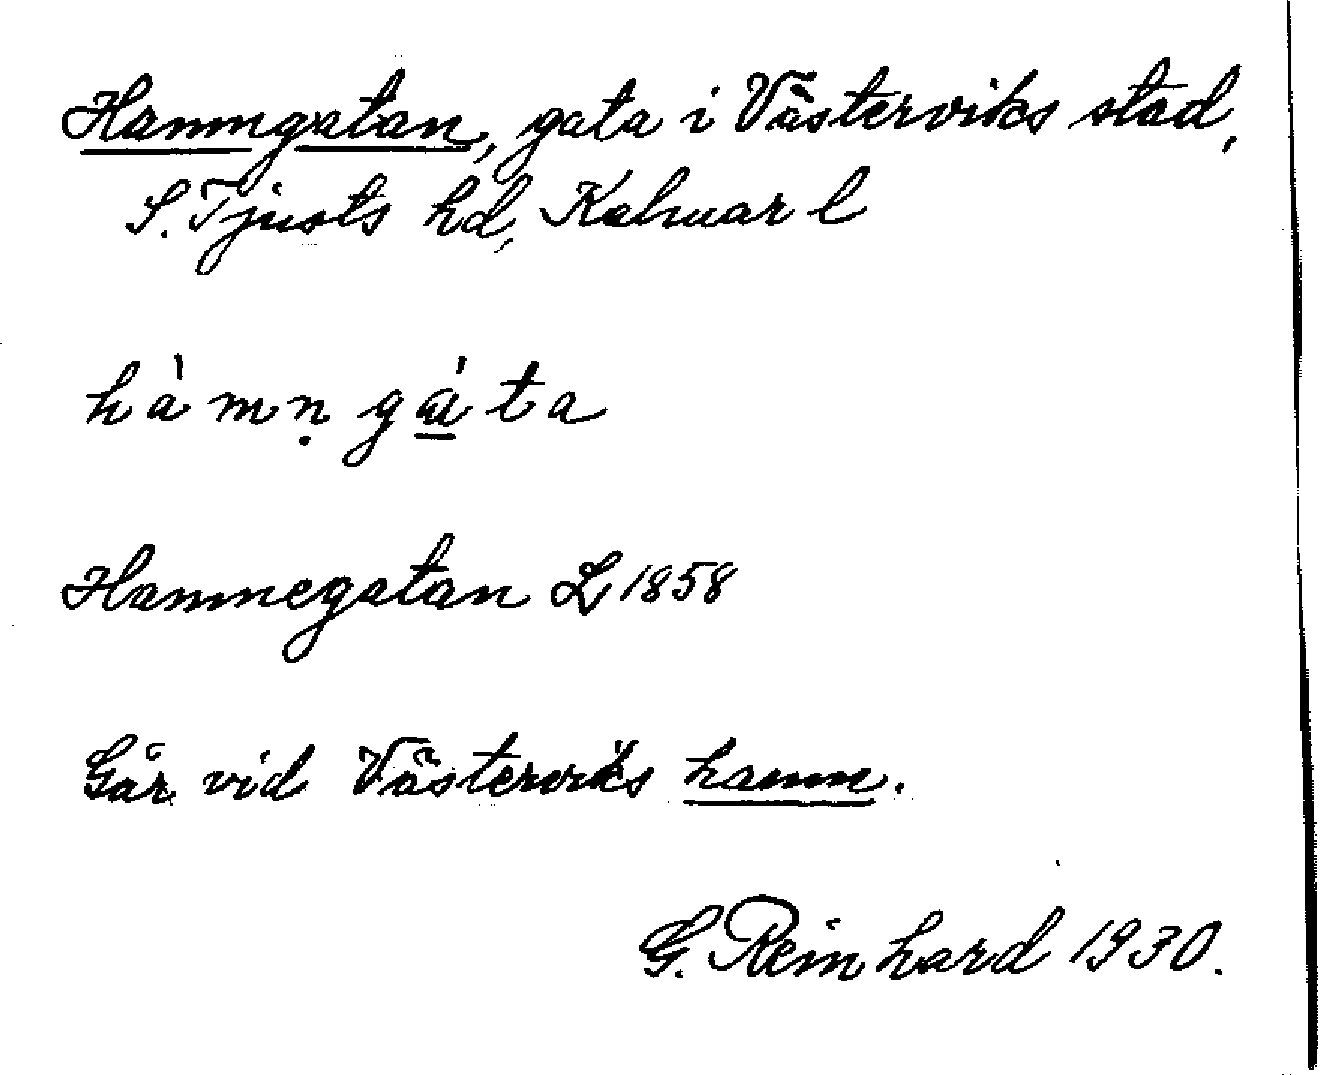 Hamngatan, gata i Västerviks stad,
S. Tjusts hd, Kalmar l
hà mṇ gá̱ ta
Hamnegatan L 1858
Går vid Västerviks hamn.
G. Reinhard 1930.